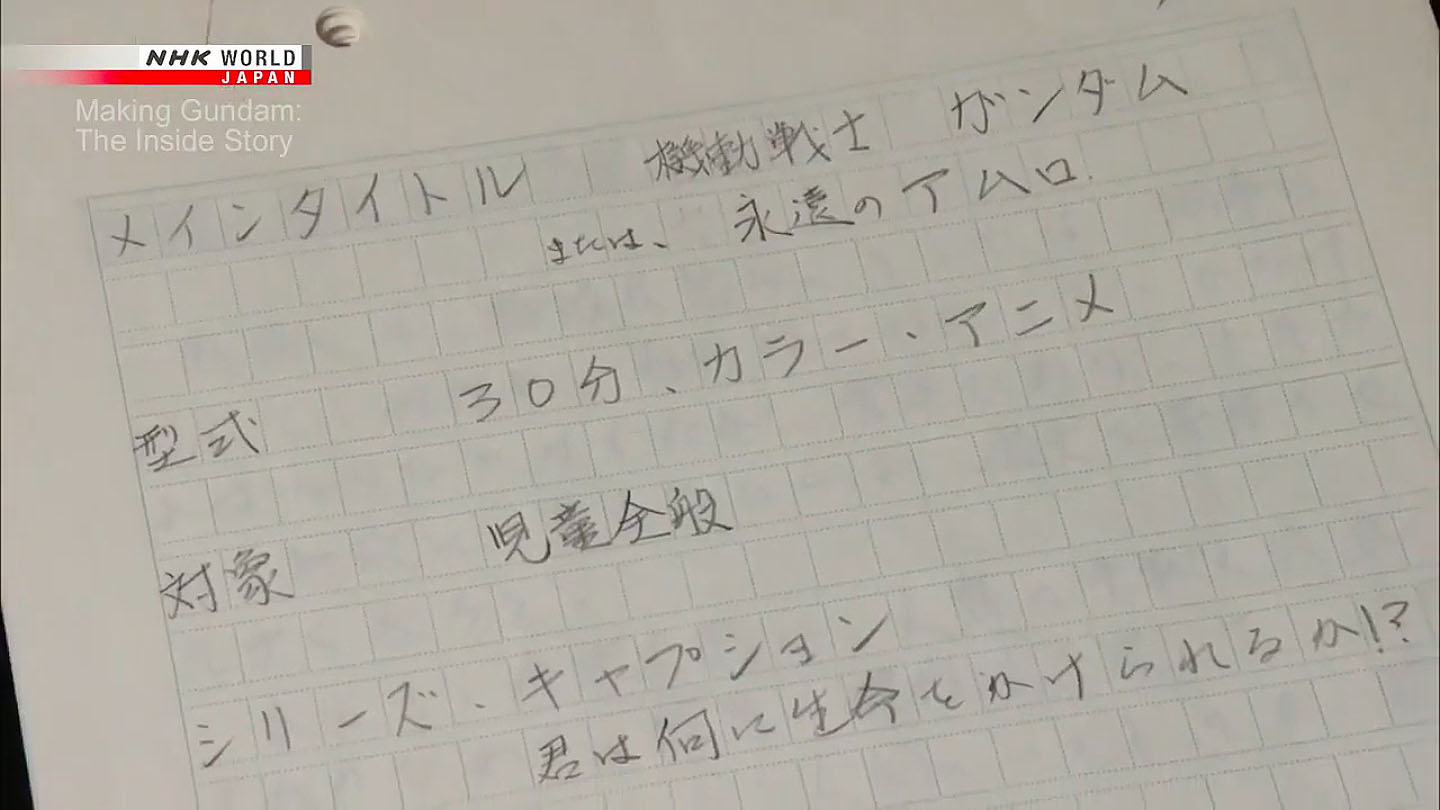 NHK WORLD
JAPAN
Making Gundam:
The Inside Story
メインタイトル 機動戦士 ガンダム
または、永遠のアムロ.
型式 30分、カラー・アニメ
対象 児童全般
シリーズ・キャプション
君は何に生命をかけられるか!?